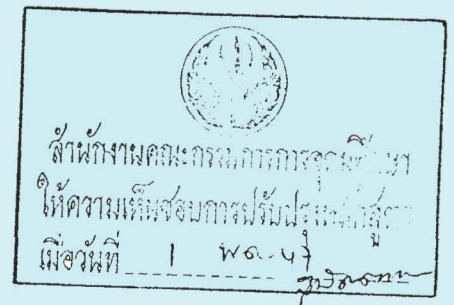 สำนักงานคณะกรรมการการอุดมศึกษา
ให้ความเห็นชอบการปรับปรุงหลักสูตร
เมื่อวันที่ 1 พ.ค. 47